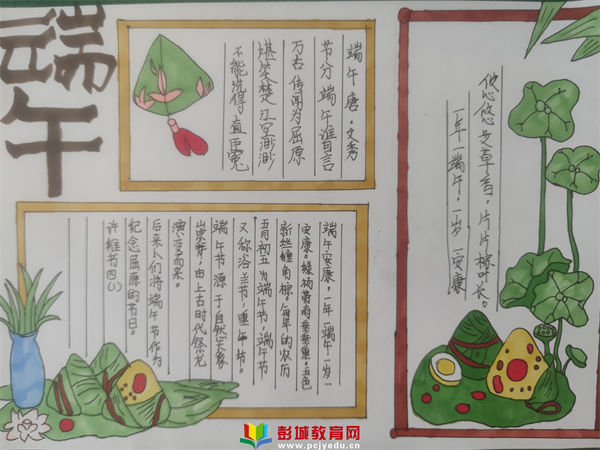 端午
端午 唐·文秀
节分端午谁自言
万古传闻为屈原
堪笑楚江空渺渺
不能洗得直臣冤
悠悠艾草香，片片粽叶长。
一年一端午，一岁一安康
端午安康，一年一端午一岁一
安康。绿杨带雨垂垂重。五色
新丝缠角粽。每年的农历
五月初五为端午节，端午节
又称浴兰节，重午节。
端午节源于自然天象
崇拜，由上古时代祭龙
演变而来。
后来人们将端午节作为
纪念屈原的节日。
许维书四(1)
彭城教育网
www.pcjyedu.cn